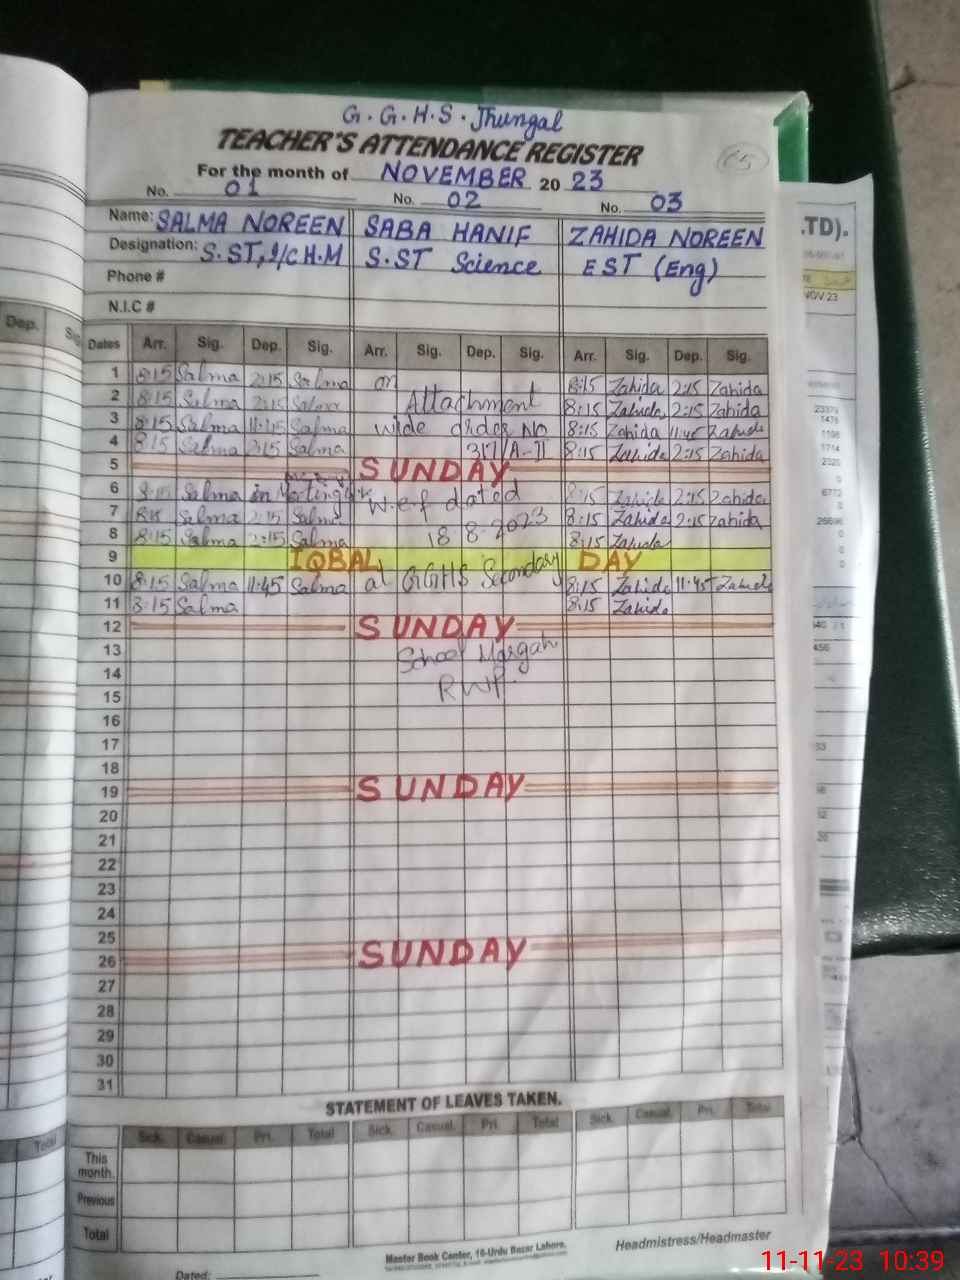 G.G.H.S. Jhungal
TEACHER'S ATTENDANCE REGISTER
65
For the month of NOVEMBER 2023
No. 01 No. 02 No. 03
Name: SALMA NOREEN SABA HANIF ZAHIDA NOREEN
Designation: S.ST, I/C H.M S.ST Science EST (Eng)
Phone #
N.I.C #
Dates Arr. Sig. Dep. Sig. Arr. Sig. Dep. Sig. Arr. Sig. Dep. Sig.
1 8:15 Salma 2:15 Salma on 8:15 Zahida 2:15 Zahida
2 8:15 Salma 2:15 Salma Attachment 8:15 Zahida 2:15 Zahida
3 8:15 Salma 11:45 Salma wide order No 8:15 Zahida 11:45 Zahida
4 8:15 Salma 2:15 Salma 317/A-II 8:15 Zahida 2:15 Zahida
5 SUNDAY
6 8:15 Salma in Meeting w.e.f dated 8:15 Zahida 2:15 Zahida
7 8:15 Salma 2:15 Salma 8:15 Zahida 2:15 Zahida
8 8:15 Salma 2:15 Salma 18 8-2023 8:15 Zahida
9 IQBAL DAY
10 8:15 Salma 11:45 Salma at GGHS Secondary 8:15 Zahida 11:45 Zahida
11 8:15 Salma 8:15 Zahida
12 SUNDAY
13 School Morgah
14 RWP.
15
16
17
18
19 SUNDAY
20
21
22
23
24
25
26 SUNDAY
27
28
29
30
31
STATEMENT OF LEAVES TAKEN.
Sick. Casual. Pri. Total Sick. Casual. Pri. Total Sick. Casual. Pri. Total
This month.
Previous
Total
Dated:
Master Book Center, 16-Urdu Bazar Lahore.
Headmistress/Headmaster
Dep. Sig
Total
LTD).
NOV 23
11-11-23 10:39